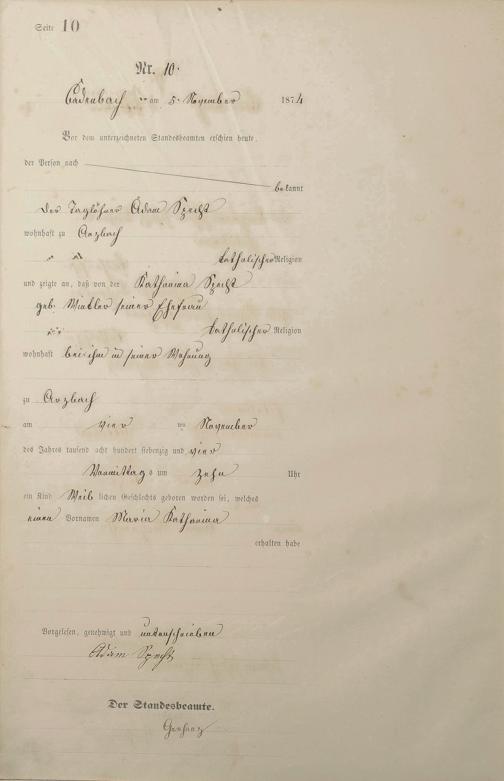 Seite 10
Nr. 10.
Cadenbach am 5. November 1874
Vor dem unterzeichneten Standesbeamten erschien heute,
der Person nach
bekannt
der Taglöhner Adam Specht
wohnhaft zu Arzbach
katholischer Religion
und zeigte an, daß von der Katharina Specht
geb. Winkler seiner Ehefrau
katholischer Religion
wohnhaft bei ihm in seiner Wohnung
zu Arzbach
am vier ten November
des Jahres tausend acht hundert siebenzig und vier
Vormittags um zehn Uhr
ein Kind Weiblichen Geschlechts geboren worden sei, welches
einen Vornamen Maria Katharina
erhalten habe
Vorgelesen, genehmigt und unterschrieben
Adam Specht
Der Standesbeamte.